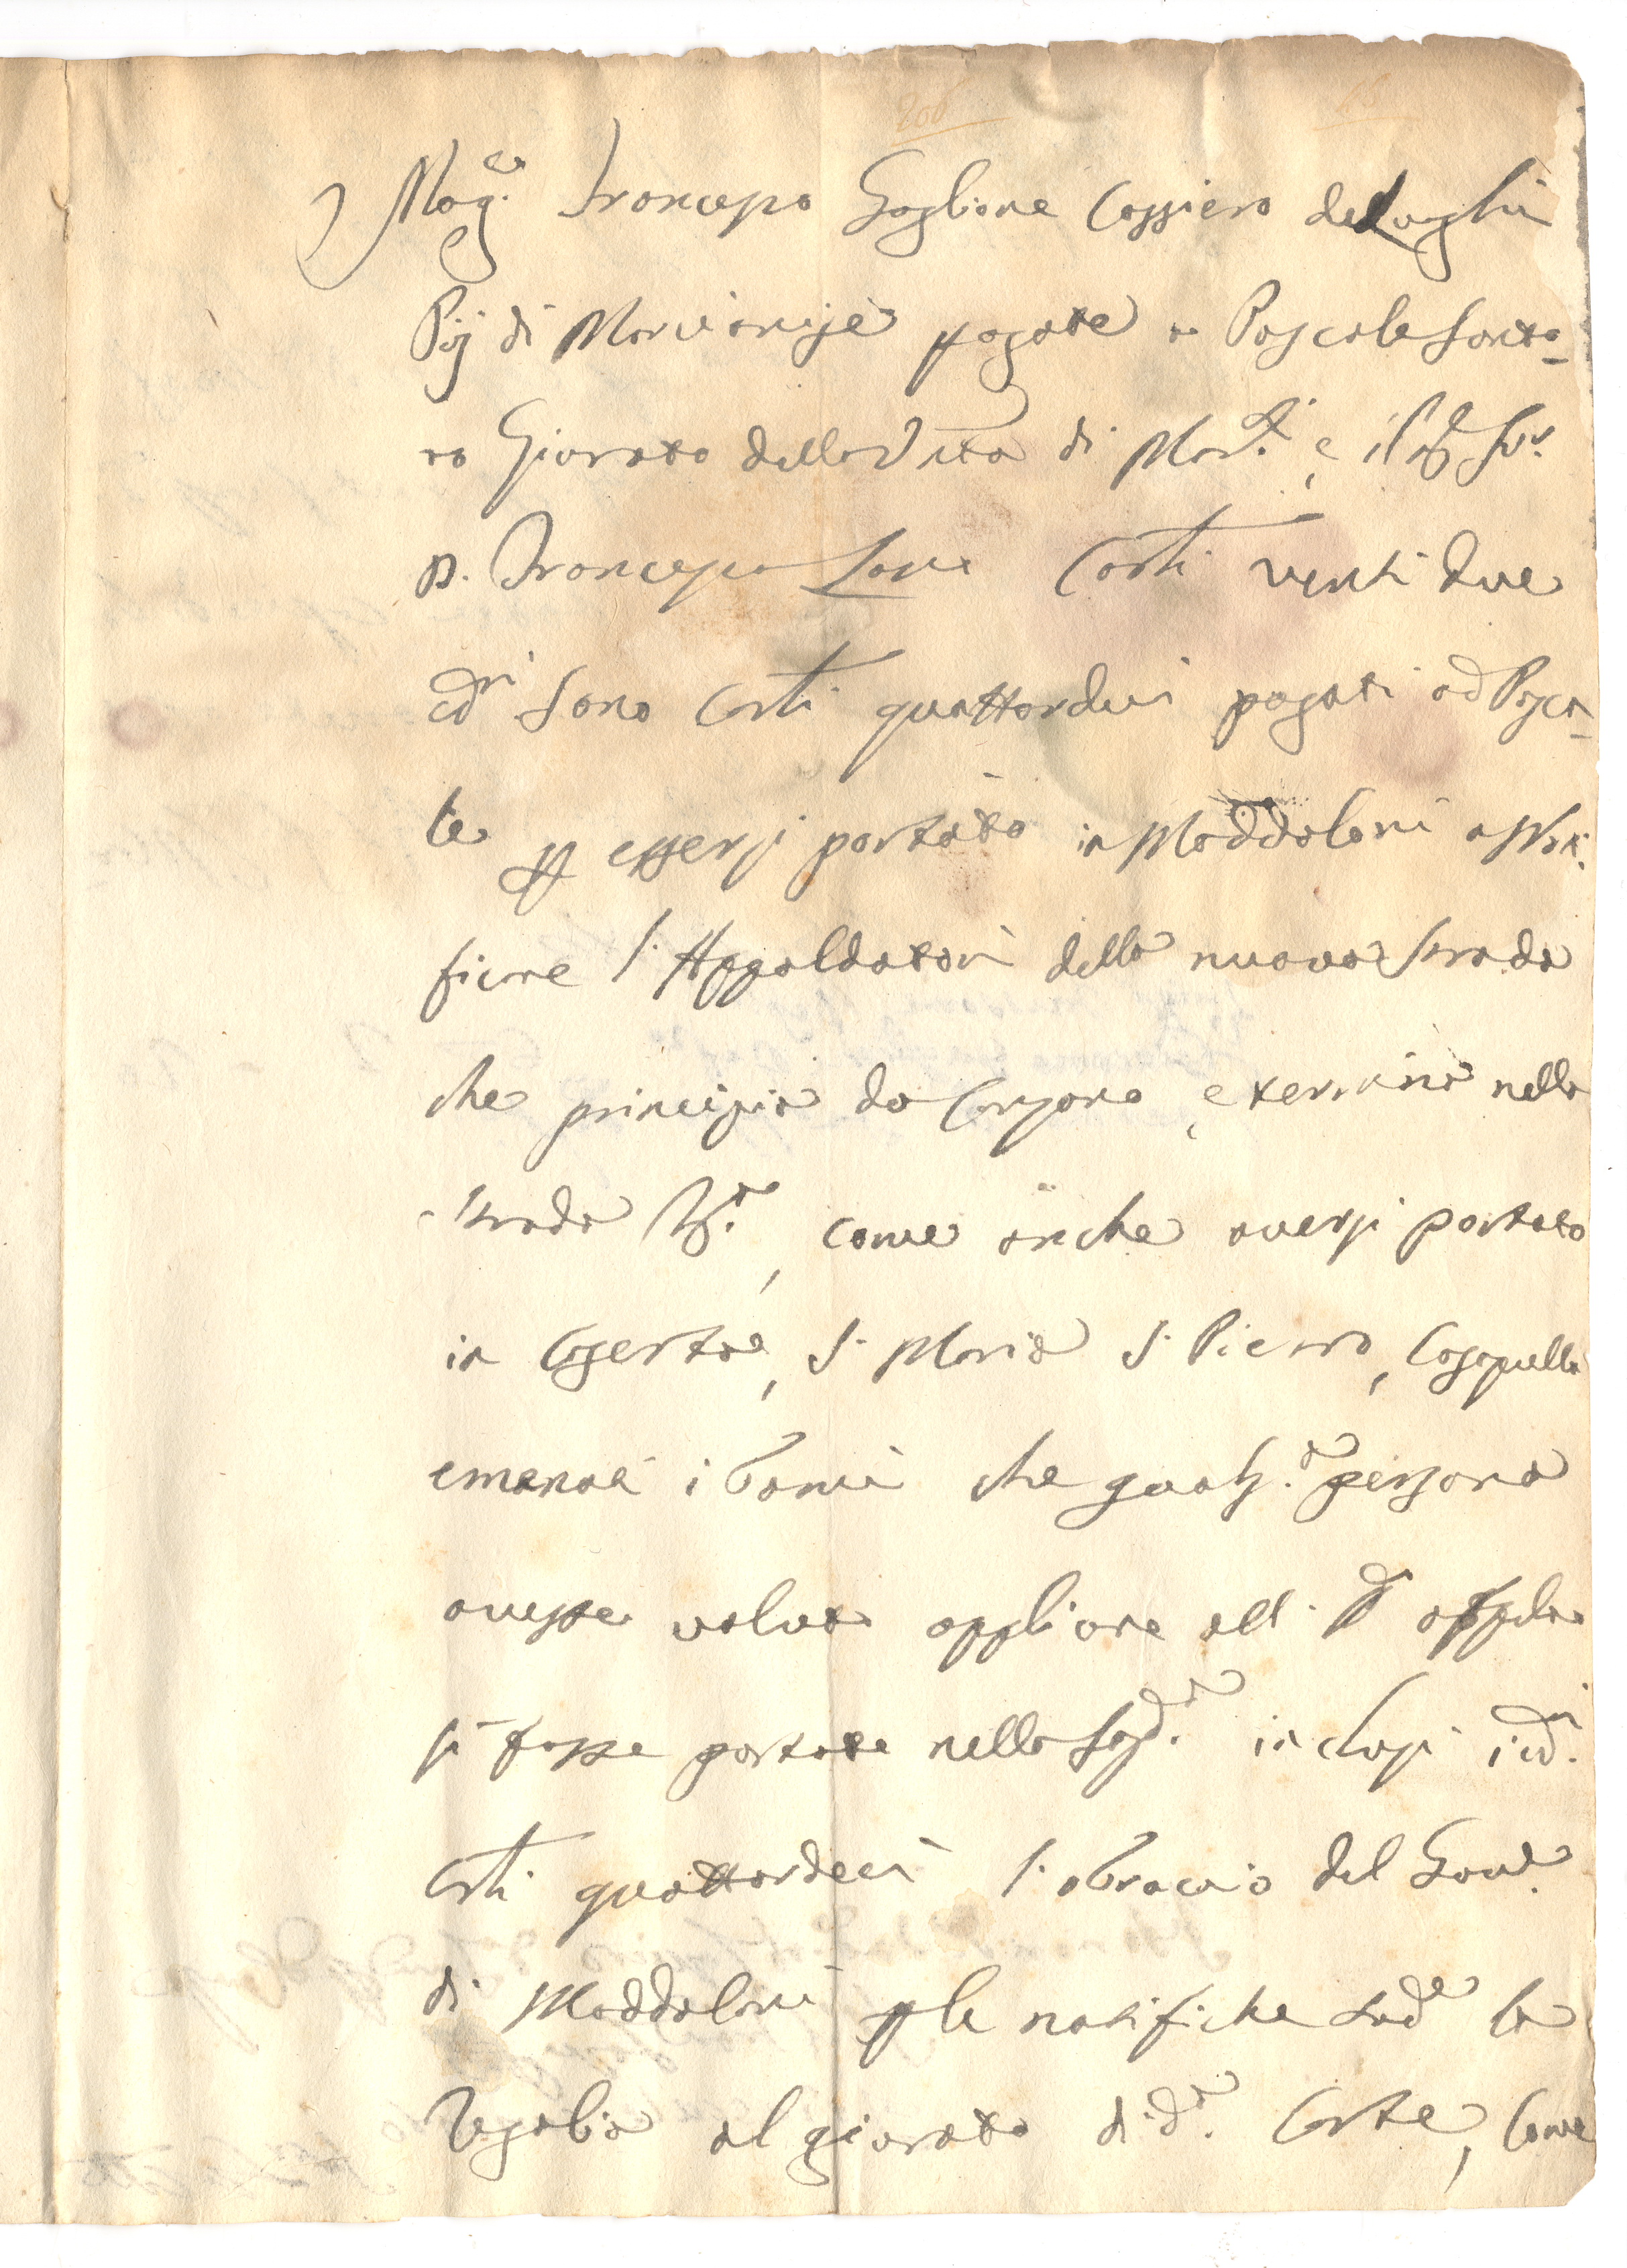 206 16
Mag.co Francesco Gaglione Cassiero de Luoghi
Pij di Marcianise pagate a Pascale Santo-
ro Giurato della Vniu.tà di Mar.si, e il
D. Francesco Lona Carlini venti due
cd.ni sono Carlini quattordici pagati ad Pasca-
le per essersi portato in Maddaloni a Noti-
ficare l'Appaldatori della nuova Strada
che principia da Carzano, e termina nella
strada R.a, come anche auersi portato
in Caserta, S. Maria S. Pietro, Casapulla
emanati i banni che quals.a persona
auesse voluto applicare all'd.o appalto
si fosse portata nella Sud.a inclusi i cd.ni
Carlini quattordeci l'abraccio del Gou.re
di Maddaloni per le notifiche sud.e la
Regalia al giurato di d.a Corte, Come